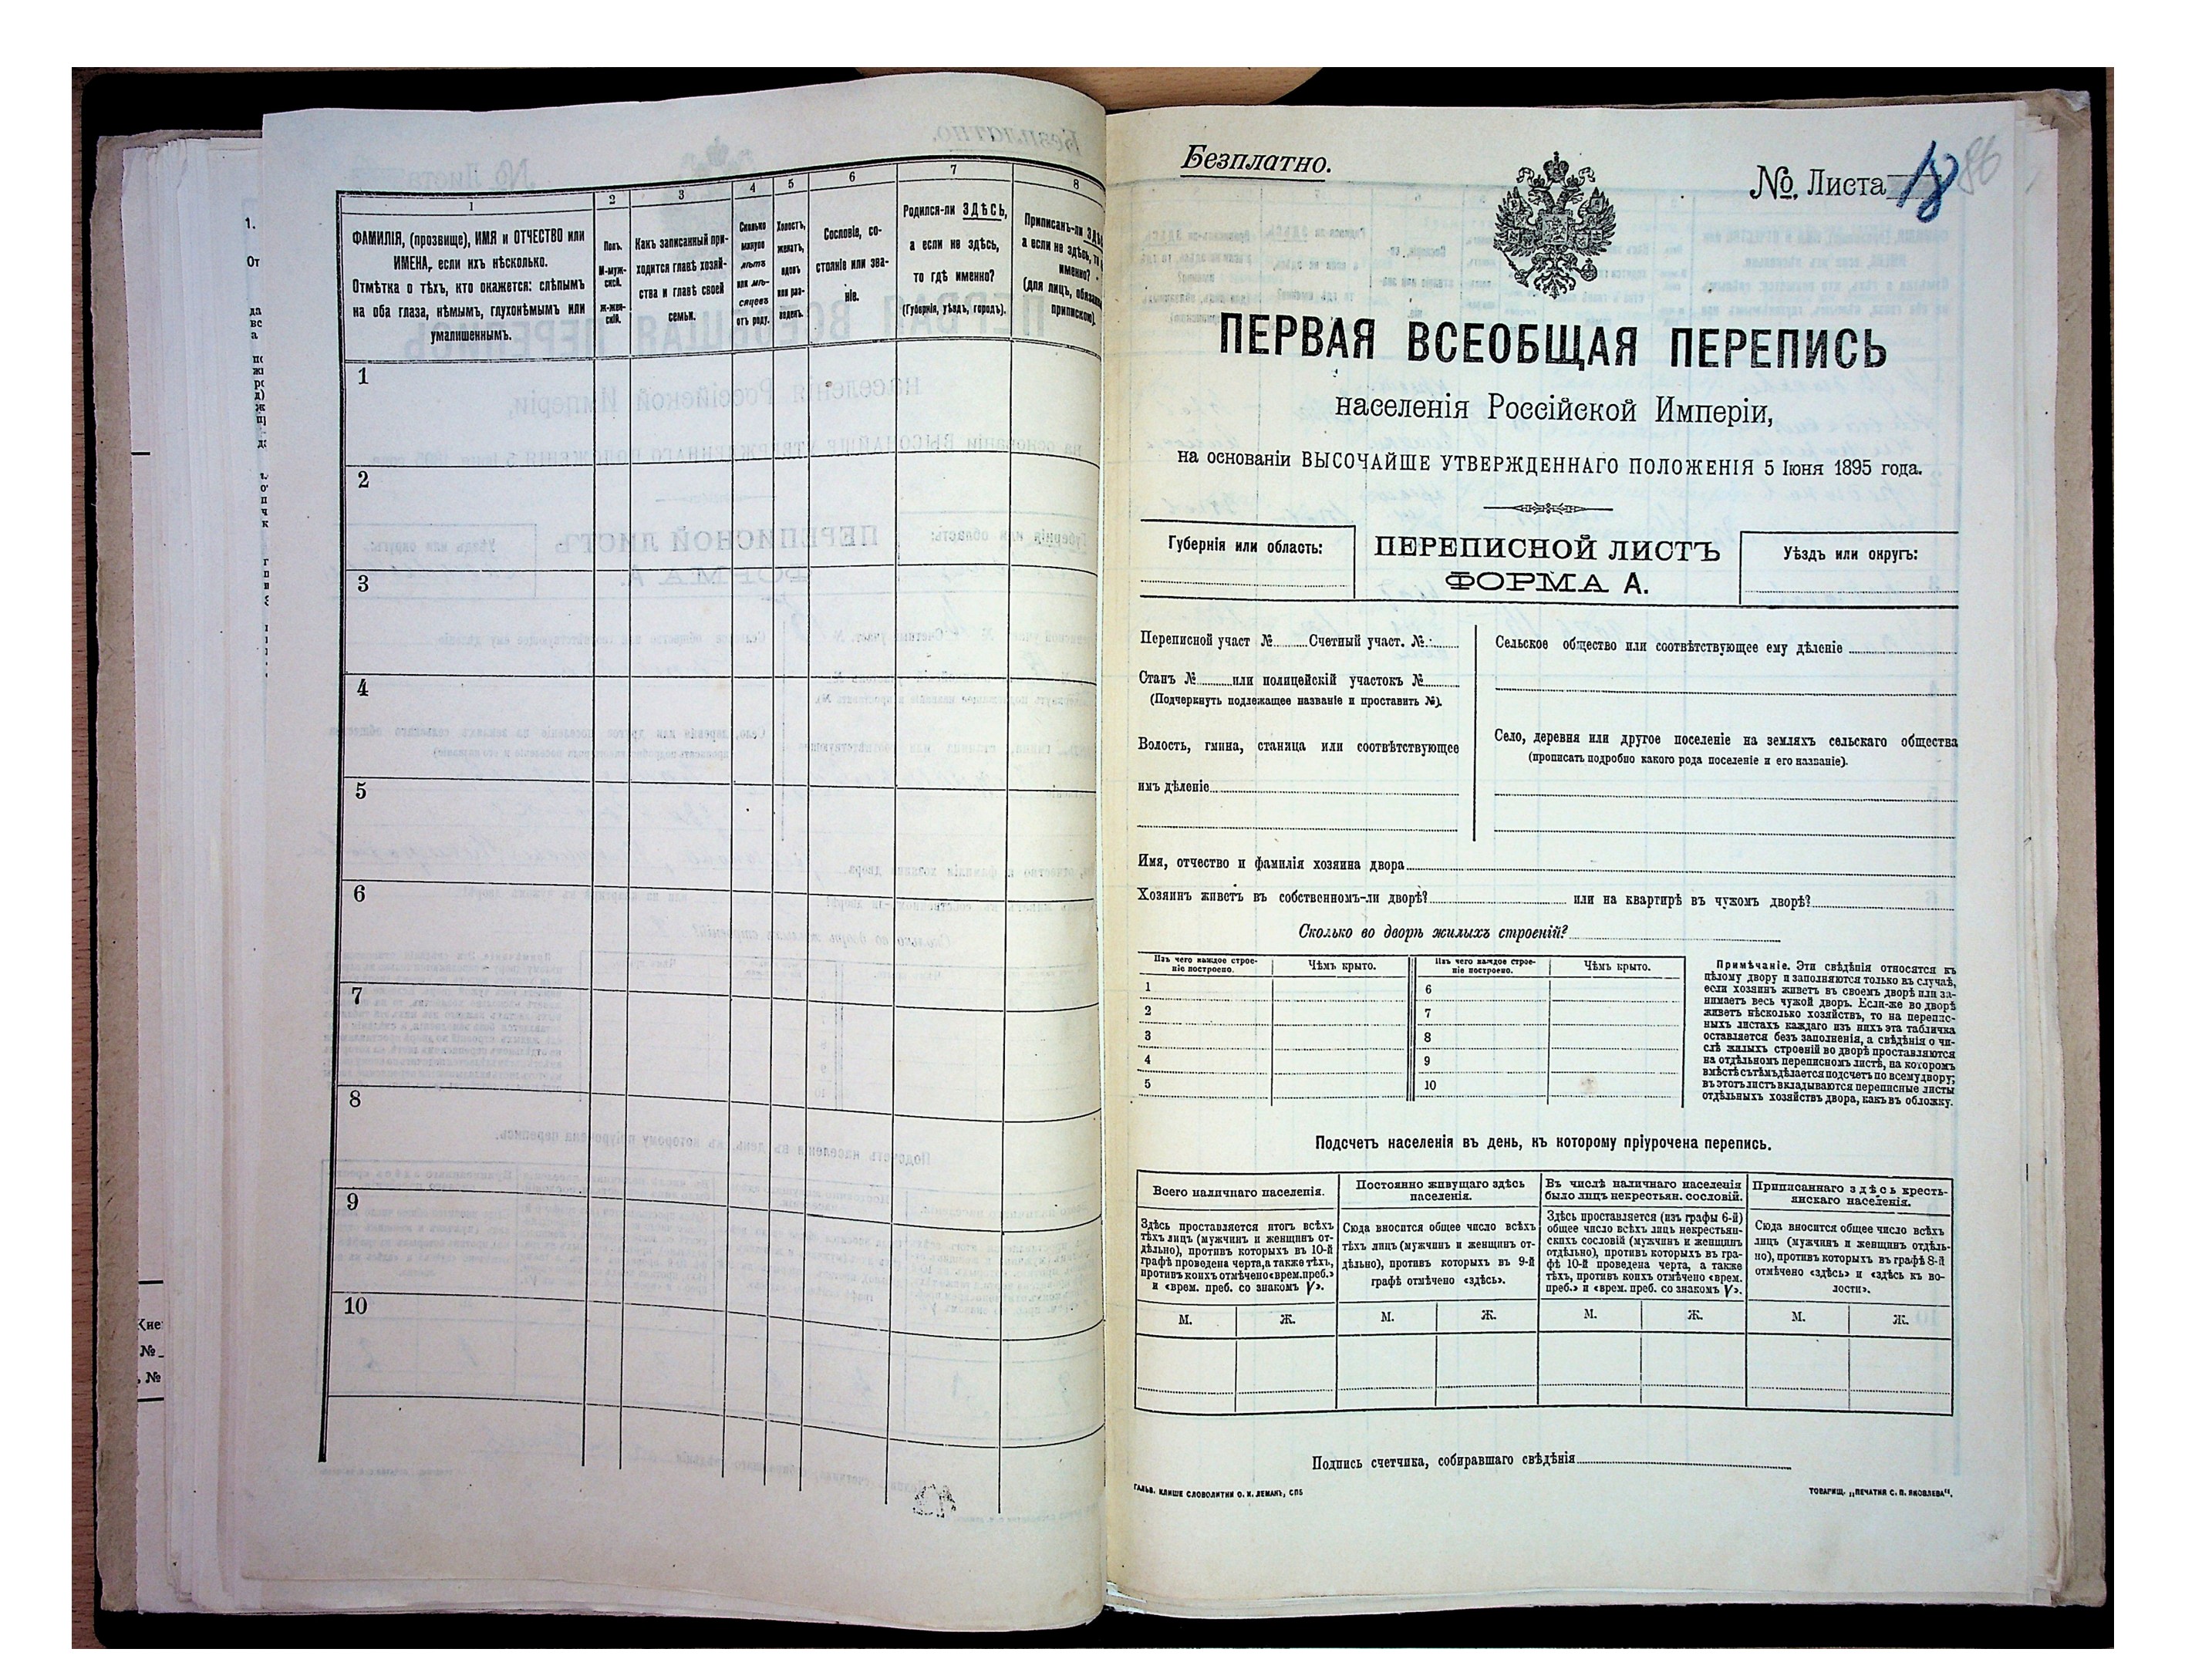 1
2
3
4
5
6
7
8
ФАМИЛІЯ, (прозвище), ИМЯ и ОТЧЕСТВО или
ИМЕНА, если ихъ нѣсколько.
Отмѣтка о тѣхъ, кто окажется: слѣпымъ
на оба глаза, нѣмымъ, глухонѣмымъ или
умалишеннымъ.
Полъ.
М-муж-
ской.
Ж-жен-
скій.
Какъ записанный при-
ходится главѣ хозяй-
ства и главѣ своей
семьи.
Сколько
минуло
лѣтъ
или мѣ-
сяцевъ
отъ роду.
Холостъ,
женатъ,
вдовъ
или раз-
веденъ.
Сословіе, со-
стояніе или зва-
ніе.
Родился-ли ЗДѢСЬ,
а если не здѣсь,
то гдѣ именно?
(Губернія, уѣздъ, городъ).
Приписанъ-ли
а если не здѣсь, то
именно?
(для лицъ,
припискою).
1
2
3
4
5
6
7
8
9
10
Безплатно.
№ Листа 18
86
ПЕРВАЯ ВСЕОБЩАЯ ПЕРЕПИСЬ
населенія Россійской Имперіи,
на основаніи ВЫСОЧАЙШЕ УТВЕРЖДЕННАГО ПОЛОЖЕНІЯ 5 Іюня 1895 года.
Губернія или область:
ПЕРЕПИСНОЙ ЛИСТЪ
ФОРМА А.
Уѣздъ или округъ:
Переписной участ № Счетный участ. №
Станъ № или полицейскій участокъ №
(Подчеркнуть подлежащее названіе и проставить №).
Волость, гмина, станица или соотвѣтствующее
имъ дѣленіе
Сельское общество или соотвѣтствующее ему дѣленіе
Село, деревня или другое поселеніе на земляхъ сельскаго общества
(прописать подробно какого рода поселеніе и его названіе).
Имя, отчество и фамилія хозяина двора
Хозяинъ живетъ въ собственномъ-ли дворѣ? или на квартирѣ въ чужомъ дворѣ?
Сколько во дворѣ жилыхъ строеній?
Изъ чего каждое строе-
ніе построено.
Чѣмъ крыто.
Изъ чего каждое строе-
ніе построено.
Чѣмъ крыто.
1
2
3
4
5
6
7
8
9
10
Примѣчаніе. Эти свѣдѣнія относятся къ
цѣлому двору и заполняются только въ случаѣ,
если хозяинъ живетъ въ своемъ дворѣ или за-
нимаетъ весь чужой дворъ. Если-же во дворѣ
живетъ нѣсколько хозяйствъ, то на перепис-
ныхъ листахъ каждаго изъ нихъ эта табличка
оставляется безъ заполненія, а свѣдѣнія о чи-
слѣ жилыхъ строеній во дворѣ проставляются
на отдѣльномъ переписномъ листѣ, на которомъ
вмѣстѣ съ тѣмъ дѣлается подсчетъ по всему двору;
въ этотъ листъ вкладываются переписные листы
отдѣльныхъ хозяйствъ двора, какъ въ обложку.
Подсчетъ населенія въ день, къ которому пріурочена перепись.
Всего наличнаго населенія.
Постоянно живущаго здѣсь
населенія.
Въ числѣ наличнаго населенія
было лицъ некрестьян. сословій.
Приписаннаго здѣсь кресть-
янскаго населенія.
Здѣсь проставляется итогъ всѣхъ
тѣхъ лицъ (мужчинъ и женщинъ от-
дѣльно), противъ которыхъ въ 10-й
графѣ проведена черта, а также тѣхъ,
противъ коихъ отмѣчено «врем. преб.»
и «врем. преб. со знакомъ V».
Сюда вносится общее число всѣхъ
тѣхъ лицъ (мужчинъ и женщинъ от-
дѣльно), противъ которыхъ въ 9-й
графѣ отмѣчено «здѣсь».
Здѣсь проставляется (изъ графы 6-й)
общее число всѣхъ лицъ некрестьян-
скихъ сословій (мужчинъ и женщинъ
отдѣльно), противъ которыхъ въ гра-
фѣ 10-й проведена черта, а также
тѣхъ, противъ коихъ отмѣчено «врем.
преб.» и «врем. преб. со знакомъ V».
Сюда вносится общее число всѣхъ
лицъ (мужчинъ и женщинъ отдѣль-
но), противъ которыхъ въ графѣ 8-й
отмѣчено «здѣсь» и «здѣсь къ во-
лости».
М. Ж. М. Ж. М. Ж. М. Ж.
Подпись счетчика, собиравшаго свѣдѣнія
ГАЛЬВ. КЛИШЕ СЛОВОЛИТНИ О. И. ЛЕМАНЪ, СПБ
ТОВАРИЩ. „ПЕЧАТНЯ С. П. ЯКОВЛЕВА".